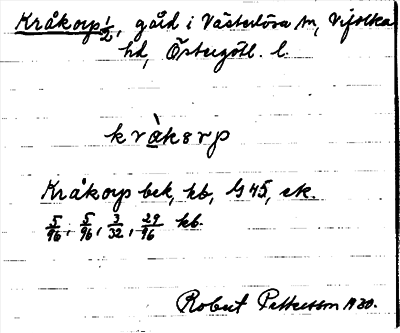 Kråkorp 1/2, gård i Västerlösa sn, Vifolka
hd, Östergötl. l.
kråkɘrp
Kråkorp bek, kb, G45, etc.
5/96, 5/96, 3/32, 29/96 kb.
Robert Pettersson 1930.